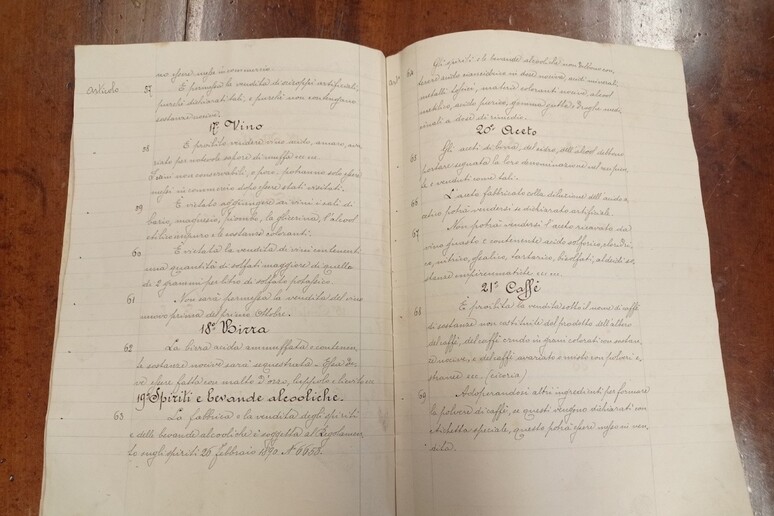 essi messi in commercio.
Articolo 57 È permessa la vendita di sciroppi artificiali,
purché dichiarati tali, e purché non contengano
sostanze nocive.
17° Vino
58 È proibito vendere vino acido, amaro, ava
riato per notevole sapore di muffa ecc.
I vini non conservabili, e poco, potranno solo essere
messi in commercio dopo essere stati visitati.
59 È vietato aggiungere ai vini i sali di
bario, magnesio, piombo, la glicerina, l'alcool
etilico impuro e le sostanze coloranti.
60 È vietata la vendita di vini contenenti
una quantità di solfati maggiore di quella
di 2 grammi per litro di solfato potassico.
61 Non sarà permessa la vendita del vino
nuovo prima del primo Ottobre.
18° Birra
62 La birra acida ammuffata e contenen
te sostanze nocive sarà sequestrata. Essa de
ve essere fatta con malto d'orzo, luppolo e lievito
19° Spiriti e bevande alcooliche.
63 La fabbrica e la vendita degli spiriti
e delle bevande alcooliche è soggetta al Regolamen
to sugli spiriti 26 febbraio 1890. N 6658.
Art° 64 Gli spiriti e le bevande alcooliche non debbono con
tenere acido cianidrico in dose nociva, acidi minerali
metalli tossici, materie coloranti nocive, alcool
metilico, acido picrico, gomma gutta e droghe medi
cinali a dose di rimedio.
20° Aceto
65 Gli aceti di birra, del sidro, dell'alcool debbono
portare segnata la loro denominazione sul recipien
te e venduti come tali.
66 L'aceto fabbricato colla diluzione dell'acido a
cetico potrà vendersi se dichiarato artificiale.
67 Non potrà vendersi l'aceto ricavato da
vino guasto e contenente acido solforico, cloridri
co, nitrico, ossalico, tartarico, bisolfati, aldeidi so
stanze empireumatiche ecc.
21° Caffè
68 È proibita la vendita sotto il nome di caffè
di sostanze non costituite del prodotto dell'albero
del caffè, del caffè crudo in grani colorati con sostan
ze nocive; e del caffè avariato e misto con polveri e
stranee ecc. (cicoria)
69 Adoperandosi altri ingredienti per formare
la polvere di caffè, se questi vengono dichiarati con
etichetta speciale, questo potrà essere messo in ven
dita.